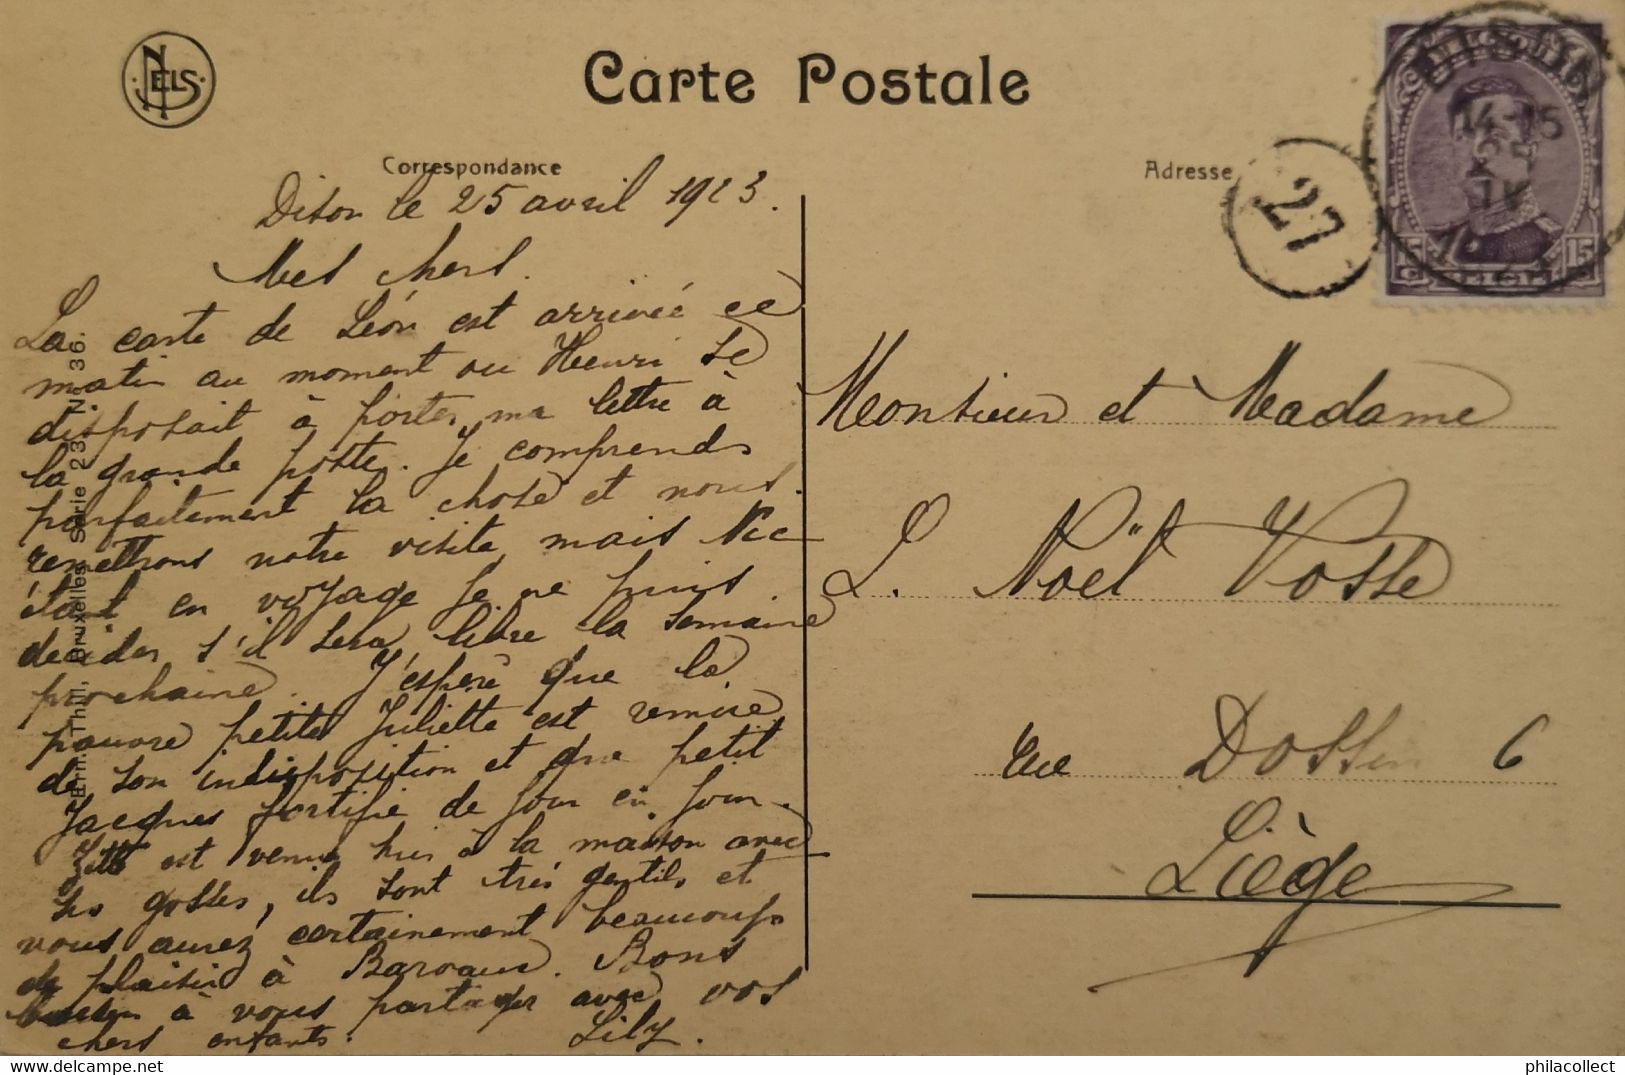 NELS
Carte Postale
Correspondance
Adresse
DISON
14-15
IV
27
15
Dison le 25 avril 1923.
Mes chers.
La carte de Léon est arrivée ce
matin au moment ou Henri se
disposait à porter ma lettre à
la grande poste. Je comprends
parfaitement la chose et nous
remettrons notre visite, mais Nic
étant en voyage je ne puis
décider s'il sera libre la semaine
prochaine. J'espère que la
pauvre petite Juliette est remise
de son indisposition et que petit
Jacques fortifie de jour en jour.
est venu hier à la maison avec
ses gosses, ils sont très gentils et
vous aurez certainement beaucoup
de plaisir à Barvaux. Bons
baisers à vous partager avec vos
chers enfants.
Lily.
Monsieur et Madame
L. Noël Vosse
rue Dossin 6
Liège
Ern. Thill, Bruxelles Série 23 No 36.
philacollect